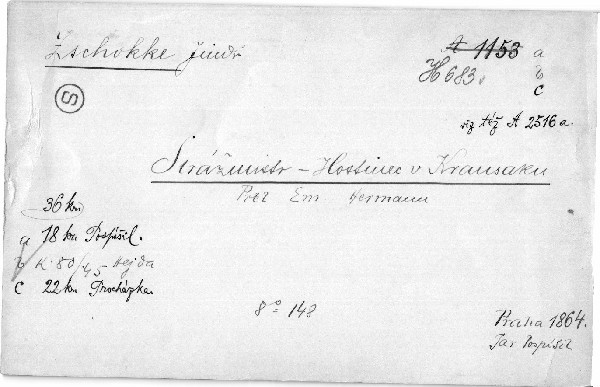 Zschokke Jindř
A 1153 a
H 683. b
c
S
viz též A 2516 a.
Strážmistr - Hostinec v Kransaku
Přel Em Hermann
36 kr
a 18 kr Pospíšil.
b K. 80/45 Hejda
c 22 kr Procházka
8° 148
Praha 1864.
Jar Pospíšil